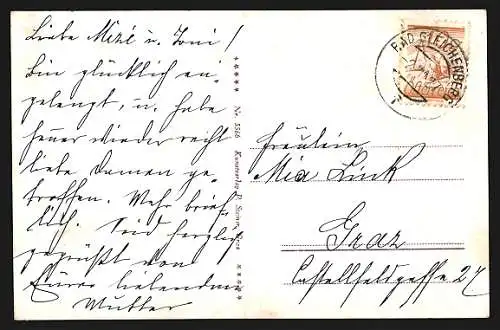 Liebe Mizi u. Toni!
Bin glücklich an-
gelangt, u. habe
heuer wieder recht
liebe Damen ge-
troffen. Mehr brief-
lich. Seid herzlich
gegrüßt von
Eurer liebenden
Mutter
Nr. 3568 Kunstverlag
Graz
BAD GLEICHENBERG
Fräulein
Mia Link
Graz
Castellfeldgasse 27